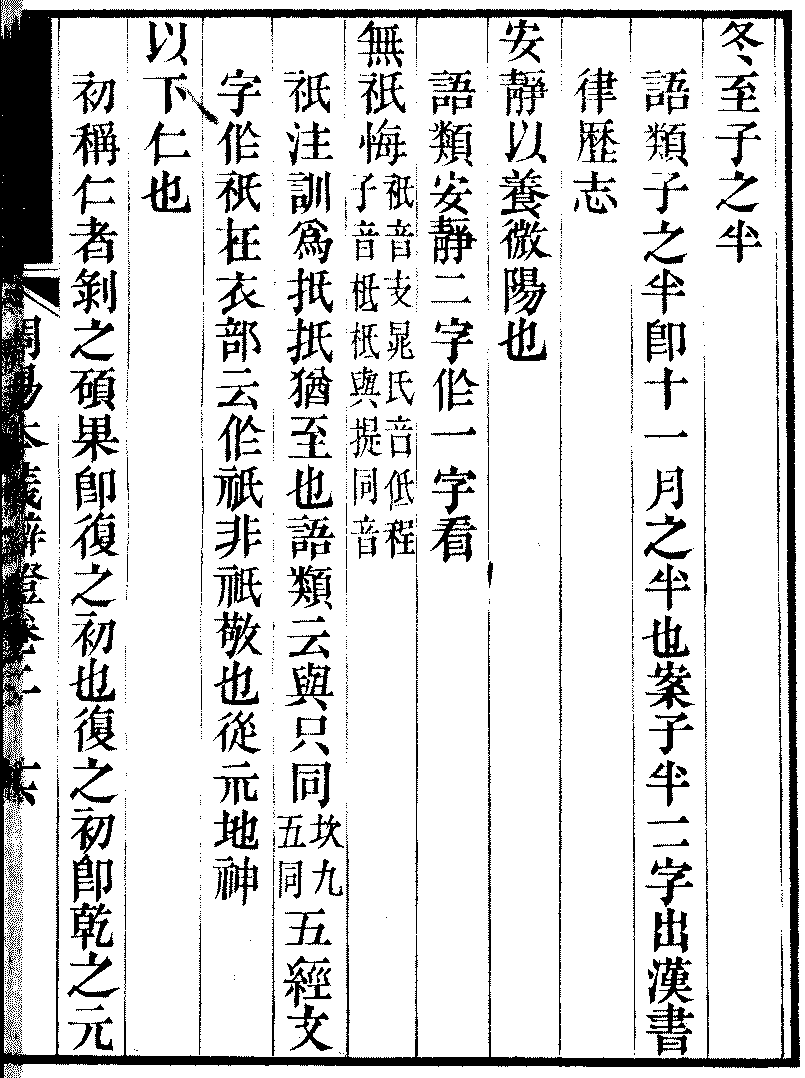 冬至子之半
語類子之半卽十一月之半也案子半二字出漢書
律歷志
安靜以養微陽也
語類安靜二字作一字看
無祇悔祇音支晁氏音低程
子音柢柢與提同音
祇注訓爲抵抵猶至也語類云與只同坎九
五同五經文
字作祇在衣部云作祇非祇敬也從示地神
以下仁也
初稱仁者剝之碩果卽復之初也復之初卽乾之元
周易本義辨證卷二